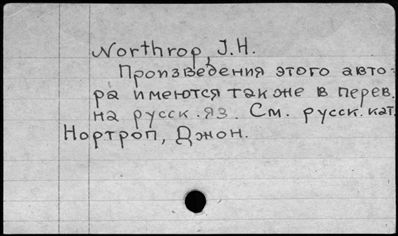 Northrop, J.H.
Произведения этого авто-
ра имеются также в перев.
на русск. яз. См. русск. кат.
Нортроп, Джон.